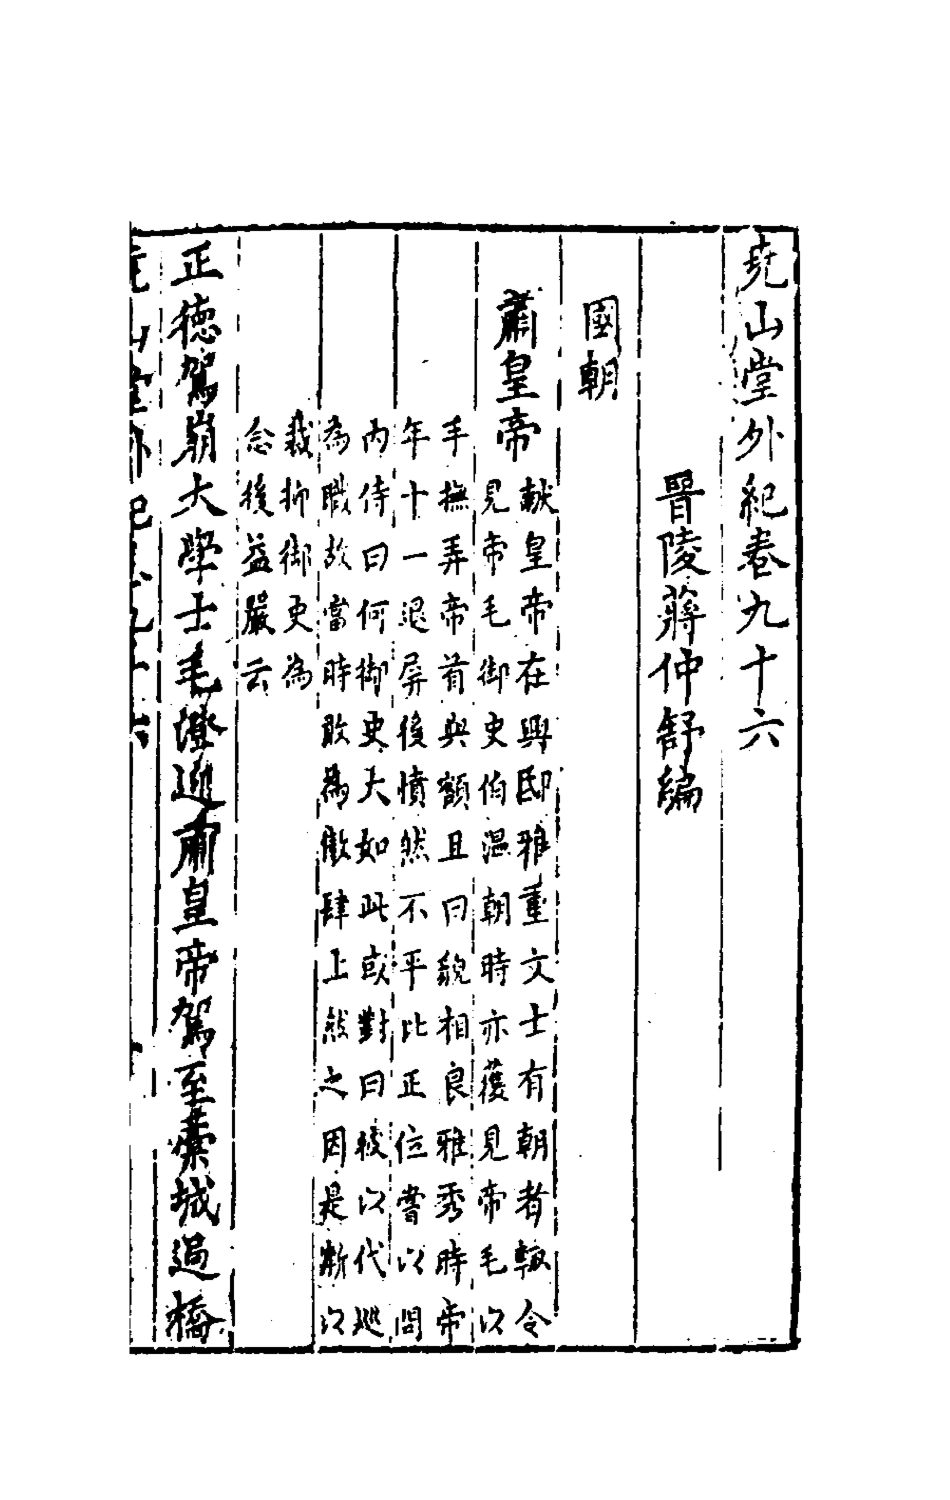 堯山堂外紀卷九十六
晉陵蔣仲舒編
國朝
肅皇帝
獻皇帝在興邸雅重文士有朝者輒令
見帝毛御史伯溫朝時亦獲見帝毛以
手撫弄帝首與額且曰貌相良雅秀時帝
年十一退屏後憤然不平比正位嘗以問
內侍曰何御史大如此或對曰緣以代巡
為職故當時敢為傲肆上然之因是漸以
裁抑御史為
念後益嚴云
正德駕崩大學士毛澄迎肅皇帝駕至藁城過橋
堯山堂外紀卷九十六